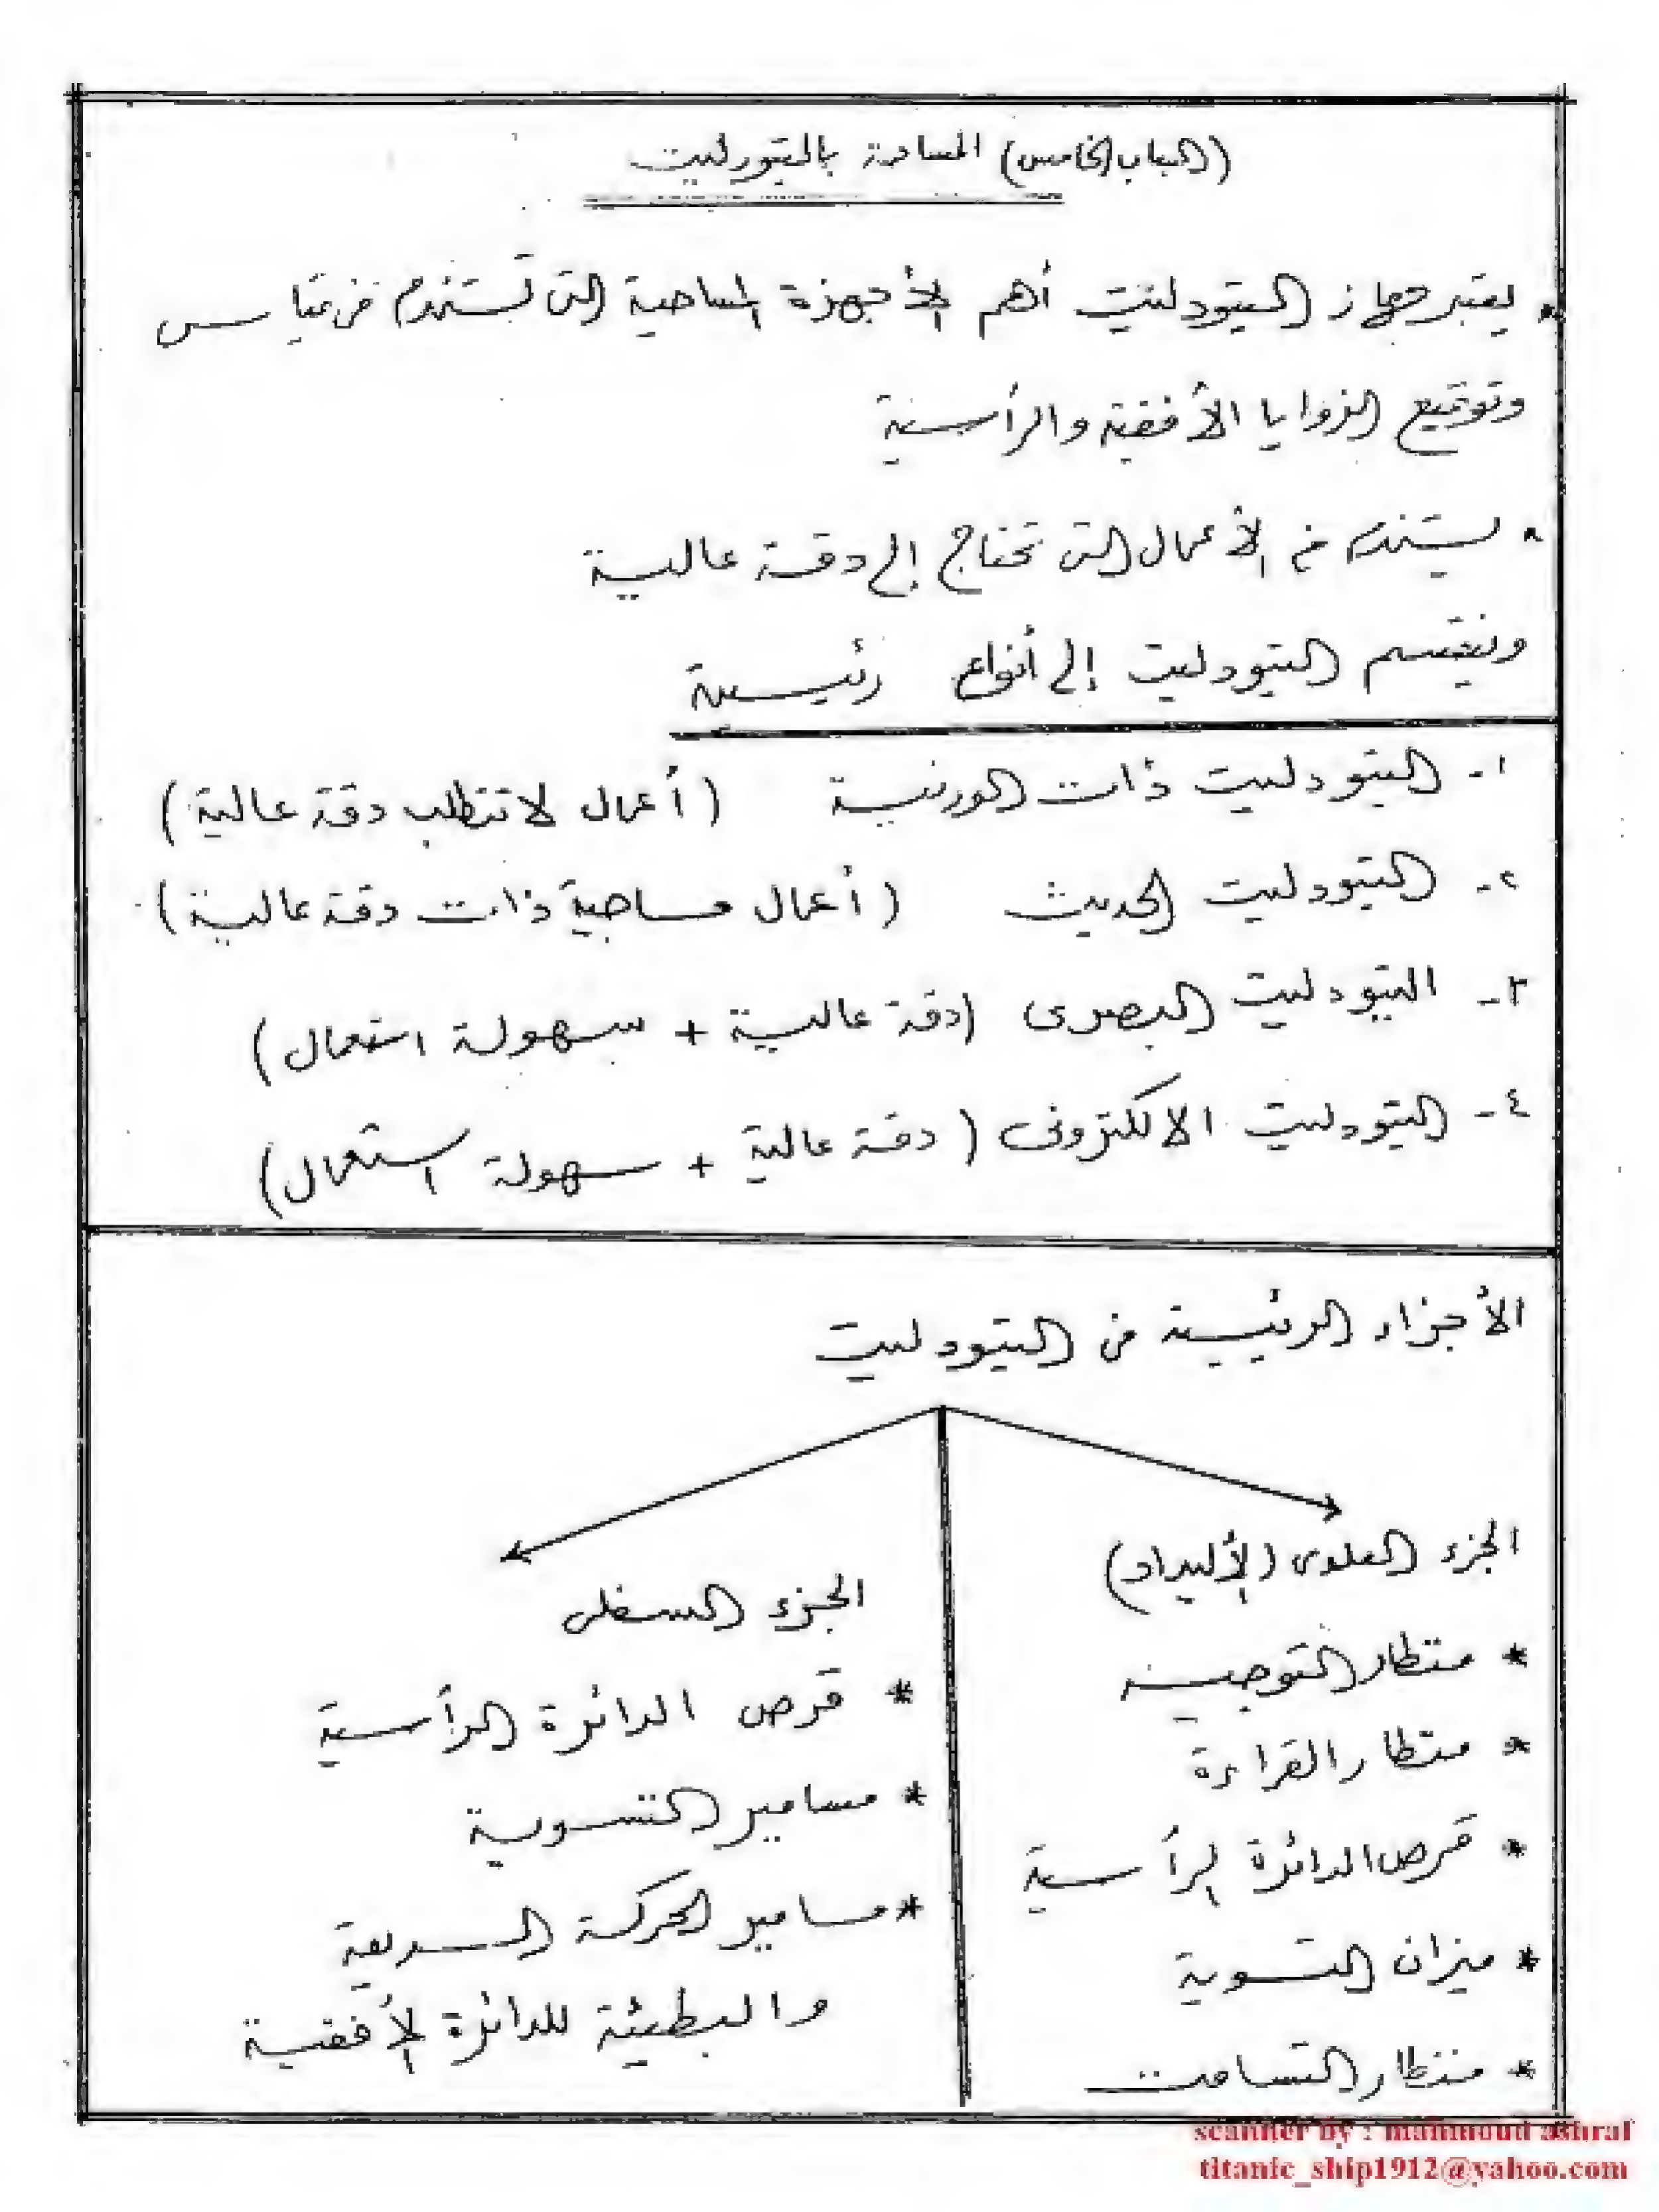 (الباب الخامس) المساحة بالتيودليت
* يعتبر جهاز التيودليت أهم الأجهزة المساحية التى تستخدم فى قياس
وتوقيع الزوايا الأفقية والرأسية
* يستخدم فى الأعمال التى تحتاج إلى دقة عالية
وينقسم التيودليت إلى أنواع رئيسية
١- التيودليت ذات الورنية (أعمال لا تتطلب دقة عالية)
٢- التيودليت الحديث (أعمال مساحية ذات دقة عالية)
٣- التيودليت البصرى (دقة عالية + سهولة استعمال)
٤- التيودليت الالكترونى (دقة عالية + سهولة استعمال)
الأجزاء الرئيسية فى التيودليت
الجزء العلوى (الأليداد)
* منظار التوجيه
* منظار القراءة
* قرص الدائرة الرأسية
* ميزان التسوية
* منظار التسامت
الجزء السفلى
* قرص الدائرة الرأسية
* مسامير التسوية
* مسامير الحركة السريعة
والبطيئة للدائرة الأفقية
scanner by : mahmoud ashraf
titanic_ship1912@yahoo.com